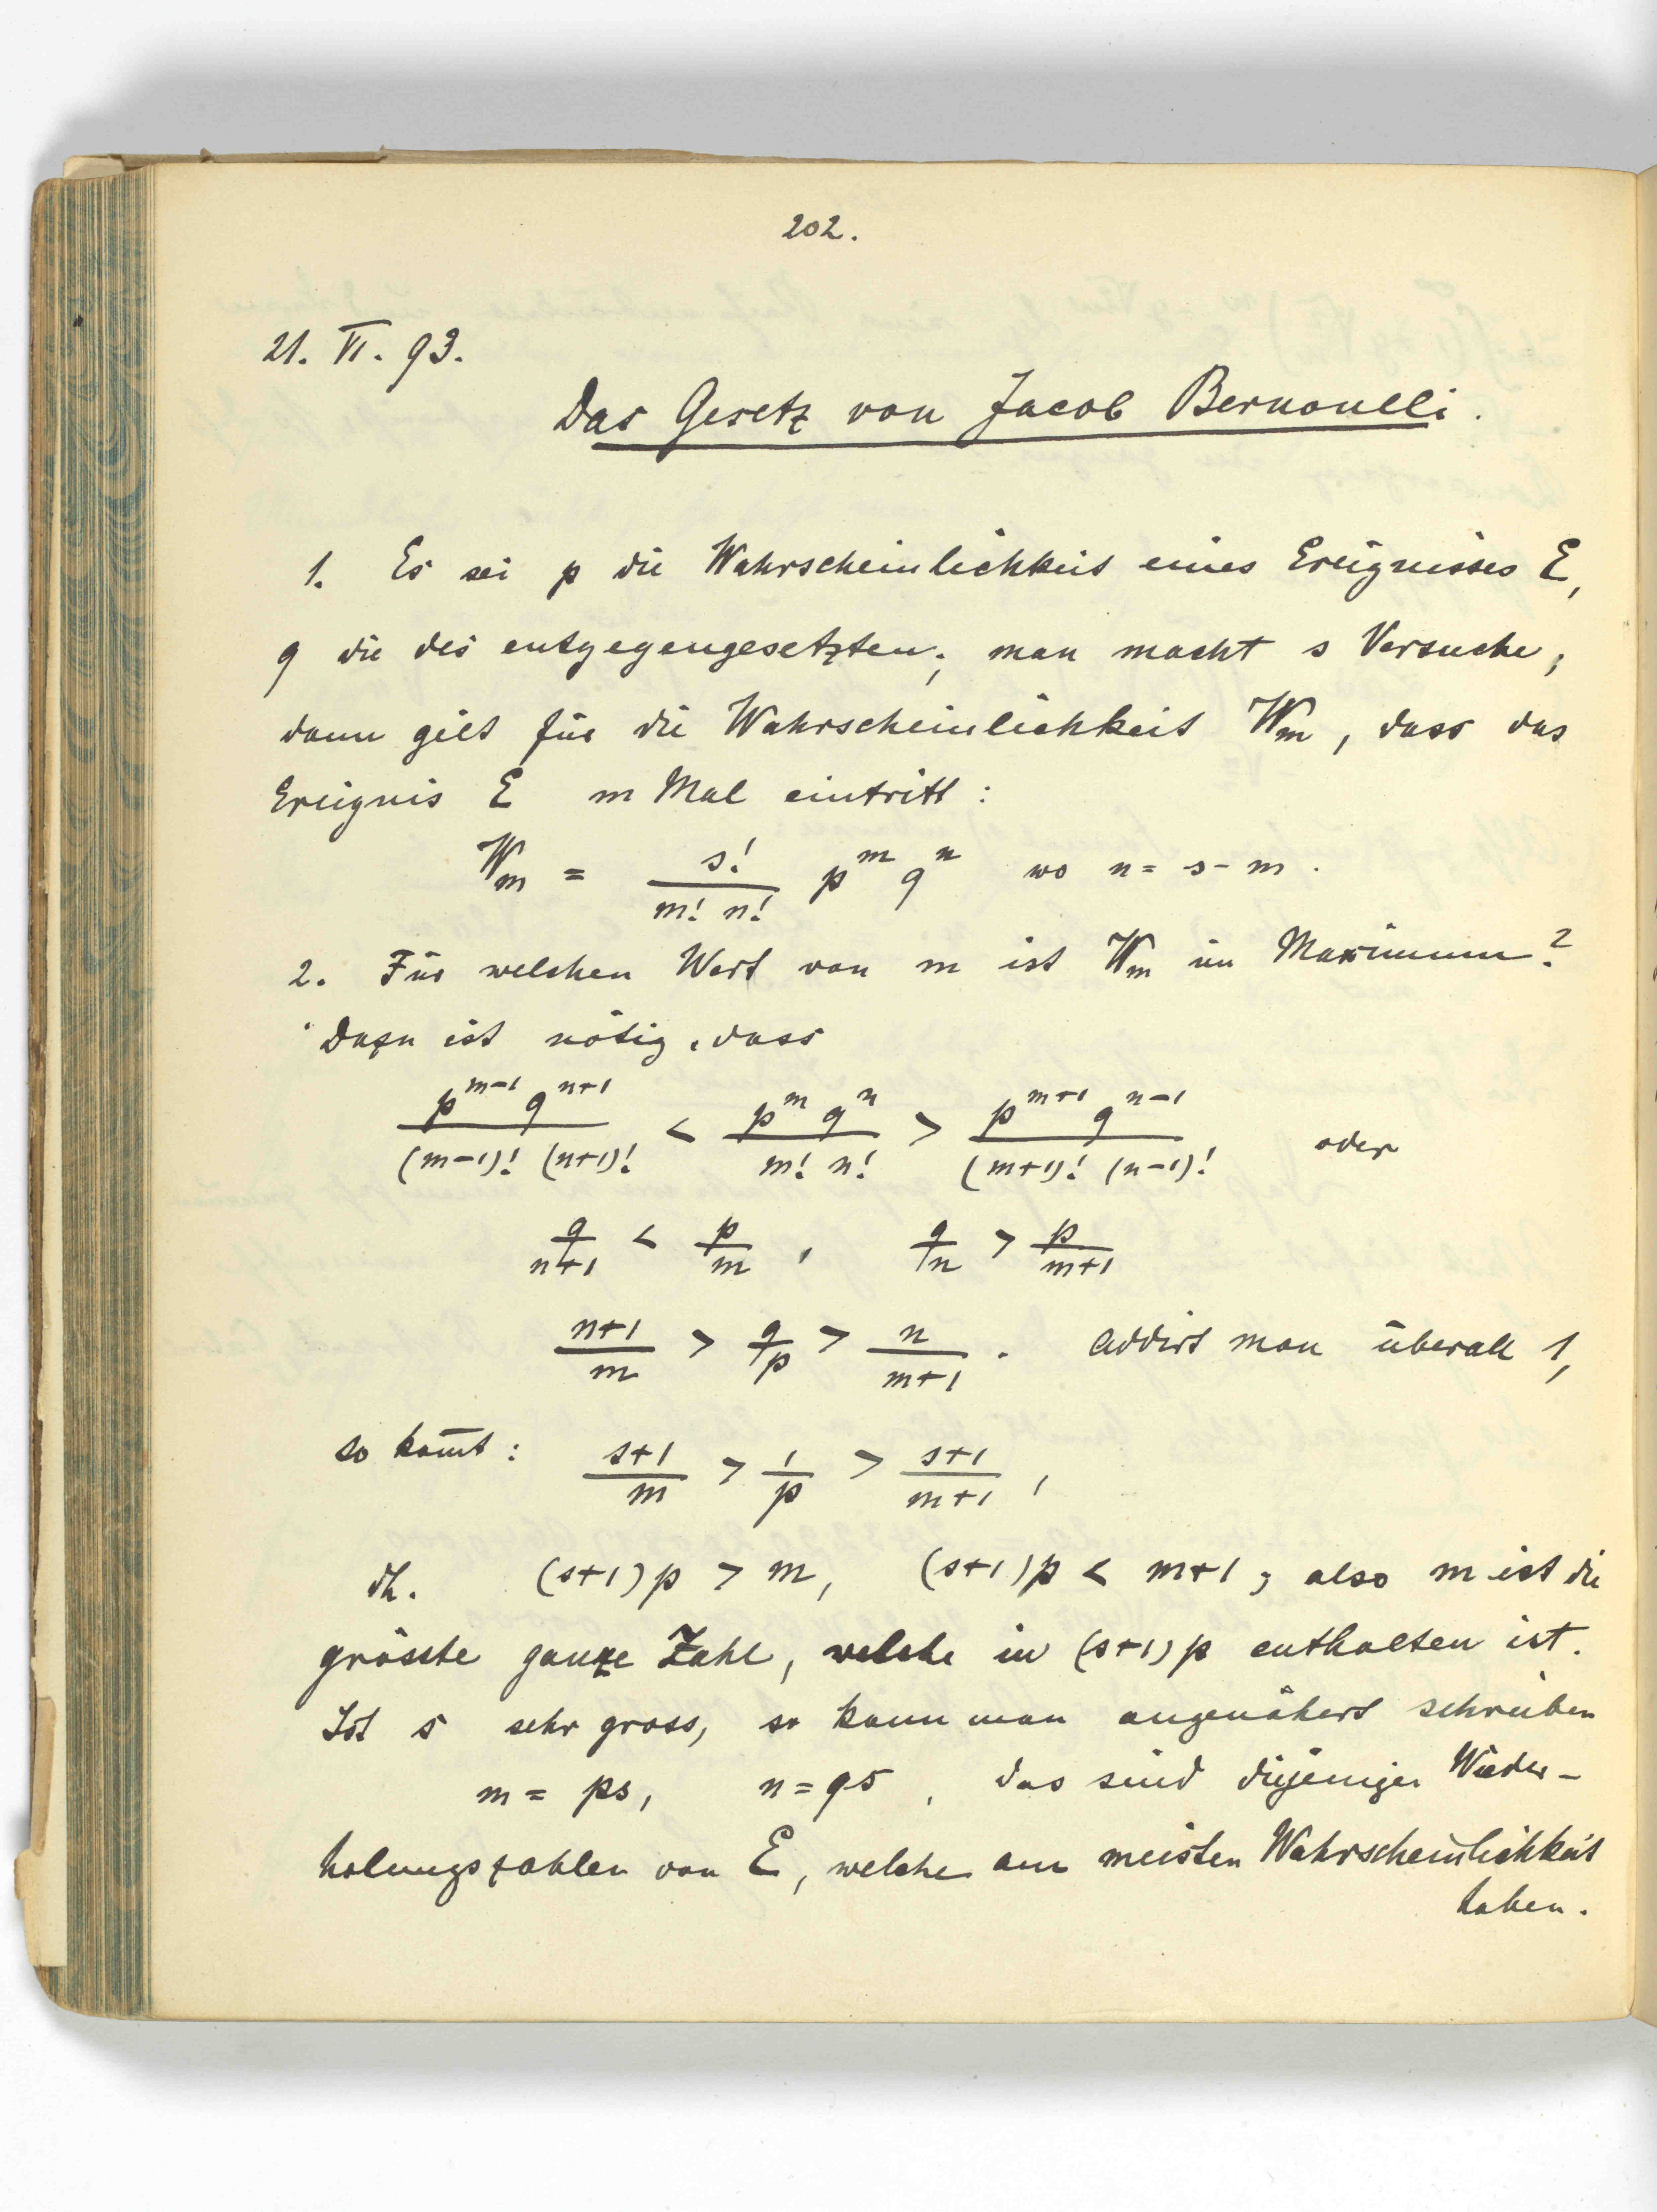 202.
21. VI. 93.
Das Gesetz von Jacob Bernoulli.
1. Es sei p die Wahrscheinlichkeit eines Ereignisses E,
q die des entgegengesetzten; man macht s Versuche,
dann gilt für die Wahrscheinlichkeit Wm, dass das
Ereignis E m Mal eintritt:
W_m = \frac{s!}{m! n!} p^m q^n wo n = s - m.
2. Für welchen Wert von m ist Wm im Maximum?
Dazu ist nötig, dass
\frac{p^{m-1} q^{n+1}}{(m-1)! (n+1)!} < \frac{p^m q^n}{m! n!} > \frac{p^{m+1} q^{n-1}}{(m+1)! (n-1)!} oder
\frac{q}{n+1} < \frac{p}{m}, \frac{q}{n} > \frac{p}{m+1}
\frac{n+1}{m} > \frac{q}{p} > \frac{n}{m+1}. Addirt man überall 1,
so kom̄t: \frac{s+1}{m} > \frac{1}{p} > \frac{s+1}{m+1},
dh. (s+1)p > m, (s+1)p < m+1; also m ist die
grösste ganze Zahl, welche in (s+1)p enthalten ist.
Ist s sehr gross, so kann man angenähert schreiben
m = ps, n = qs, das sind diejenigen Wieder-
holungszahlen von E, welche am meisten Wahrscheinlichkeit
haben.